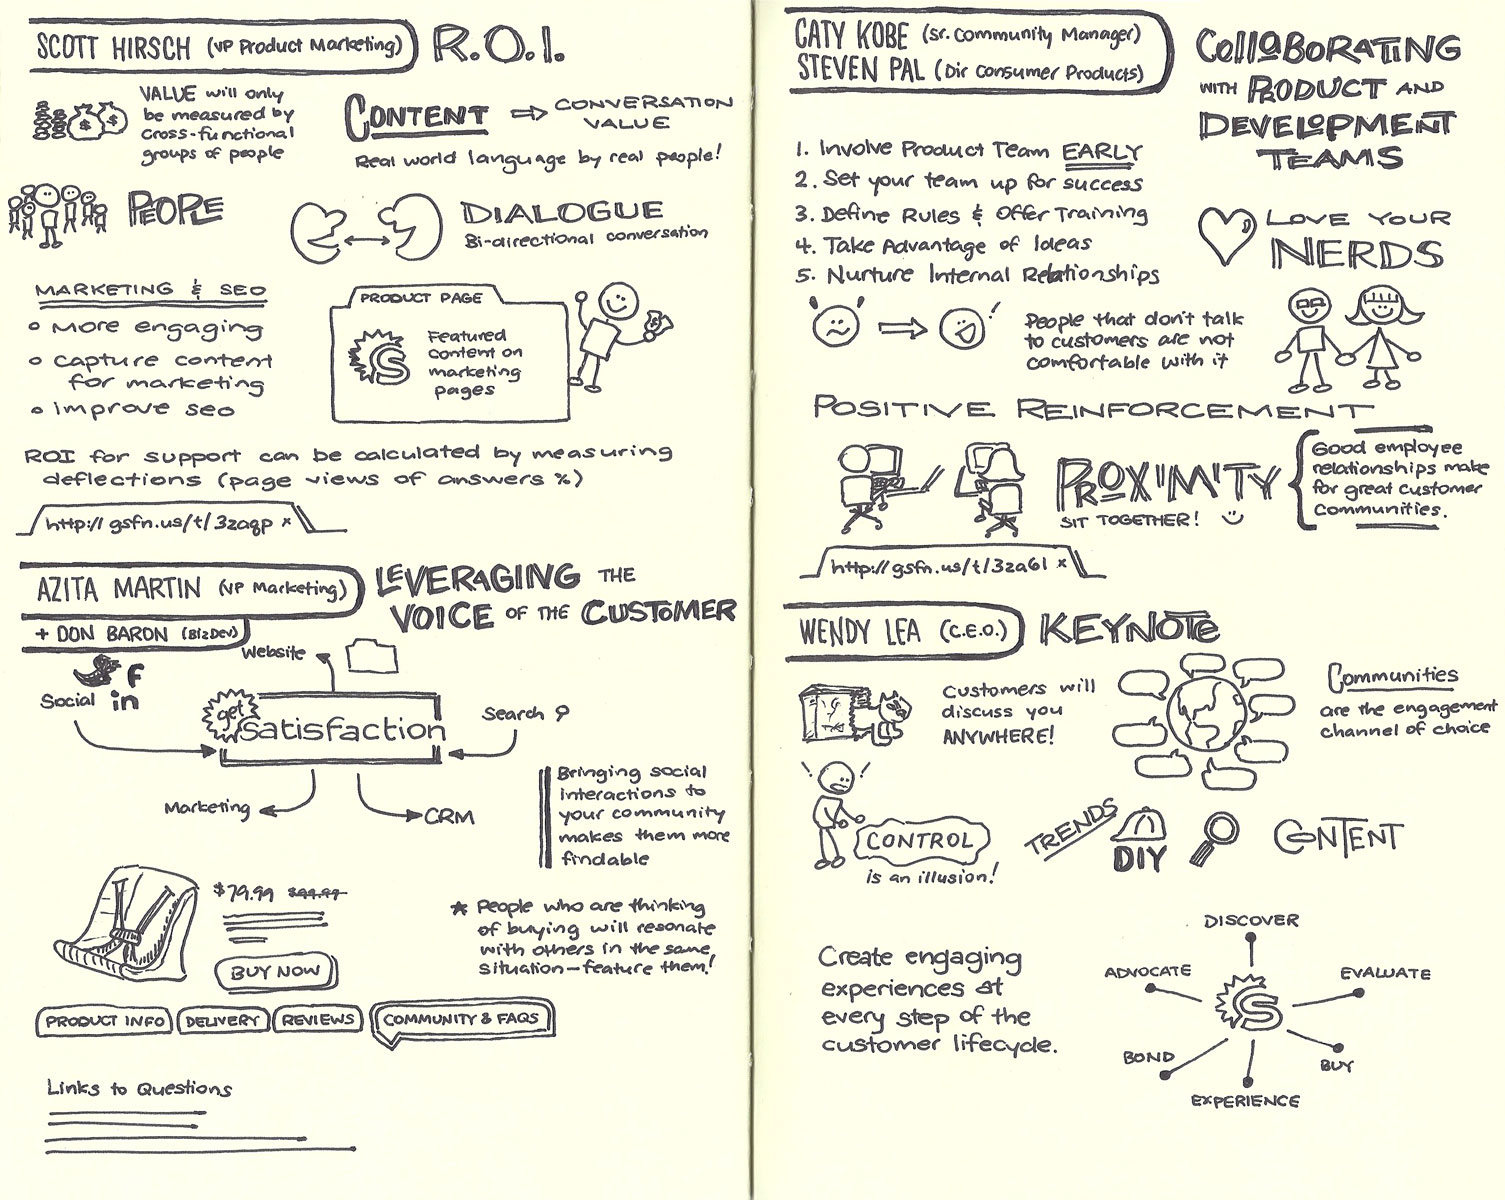 SCOTT HIRSCH (VP Product Marketing)
R.O.I.
VALUE will only
be measured by
cross-functional
groups of people
CONTENT ⇨ CONVERSATION
VALUE
Real world language by real people!
PEOPLE
DIALOGUE
Bi-directional conversation
MARKETING & SEO
• More engaging
• Capture content
for marketing
• improve seo
PRODUCT PAGE
S
Featured
content on
marketing
pages
ROI for support can be calculated by measuring
deflections (page views of answers %)
http://gsfn.us/t/3zaqp x
AZITA MARTIN (VP Marketing)
+ DON BARON (BizDev)
LEVERAGING THE
VOICE OF THE CUSTOMER
Website
f
Social in
get
Satisfaction
Search
Marketing
CRM
Bringing social
interactions to
your community
makes them more
findable
$79.99 $99.99
BUY NOW
* People who are thinking
of buying will resonate
with others in the same
situation—feature them!
PRODUCT INFO
DELIVERY
REVIEWS
COMMUNITY & FAQS
Links to Questions
CATY KOBE (Sr. Community Manager)
STEVEN PAL (Dir Consumer Products)
COLLABORATING
WITH PRODUCT AND
DEVELOPMENT
TEAMS
1. Involve Product Team EARLY
2. Set your team up for success
3. Define Rules & Offer Training
4. Take Advantage of Ideas
5. Nurture Internal Relationships
LOVE YOUR
NERDS
People that don't talk
to customers are not
comfortable with it
POSITIVE REINFORCEMENT
PROXIMITY
SIT TOGETHER!
Good employee
relationships make
for great customer
communities.
http://gsfn.us/t/3za6l x
WENDY LEA (C.E.O.)
KEYNOTE
Customers will
discuss you
ANYWHERE!
Communities
are the engagement
channel of choice
CONTROL
is an illusion!
TRENDS
DIY
CONTENT
Create engaging
experiences at
every step of the
customer lifecycle.
DISCOVER
ADVOCATE
EVALUATE
S
BOND
BUY
EXPERIENCE